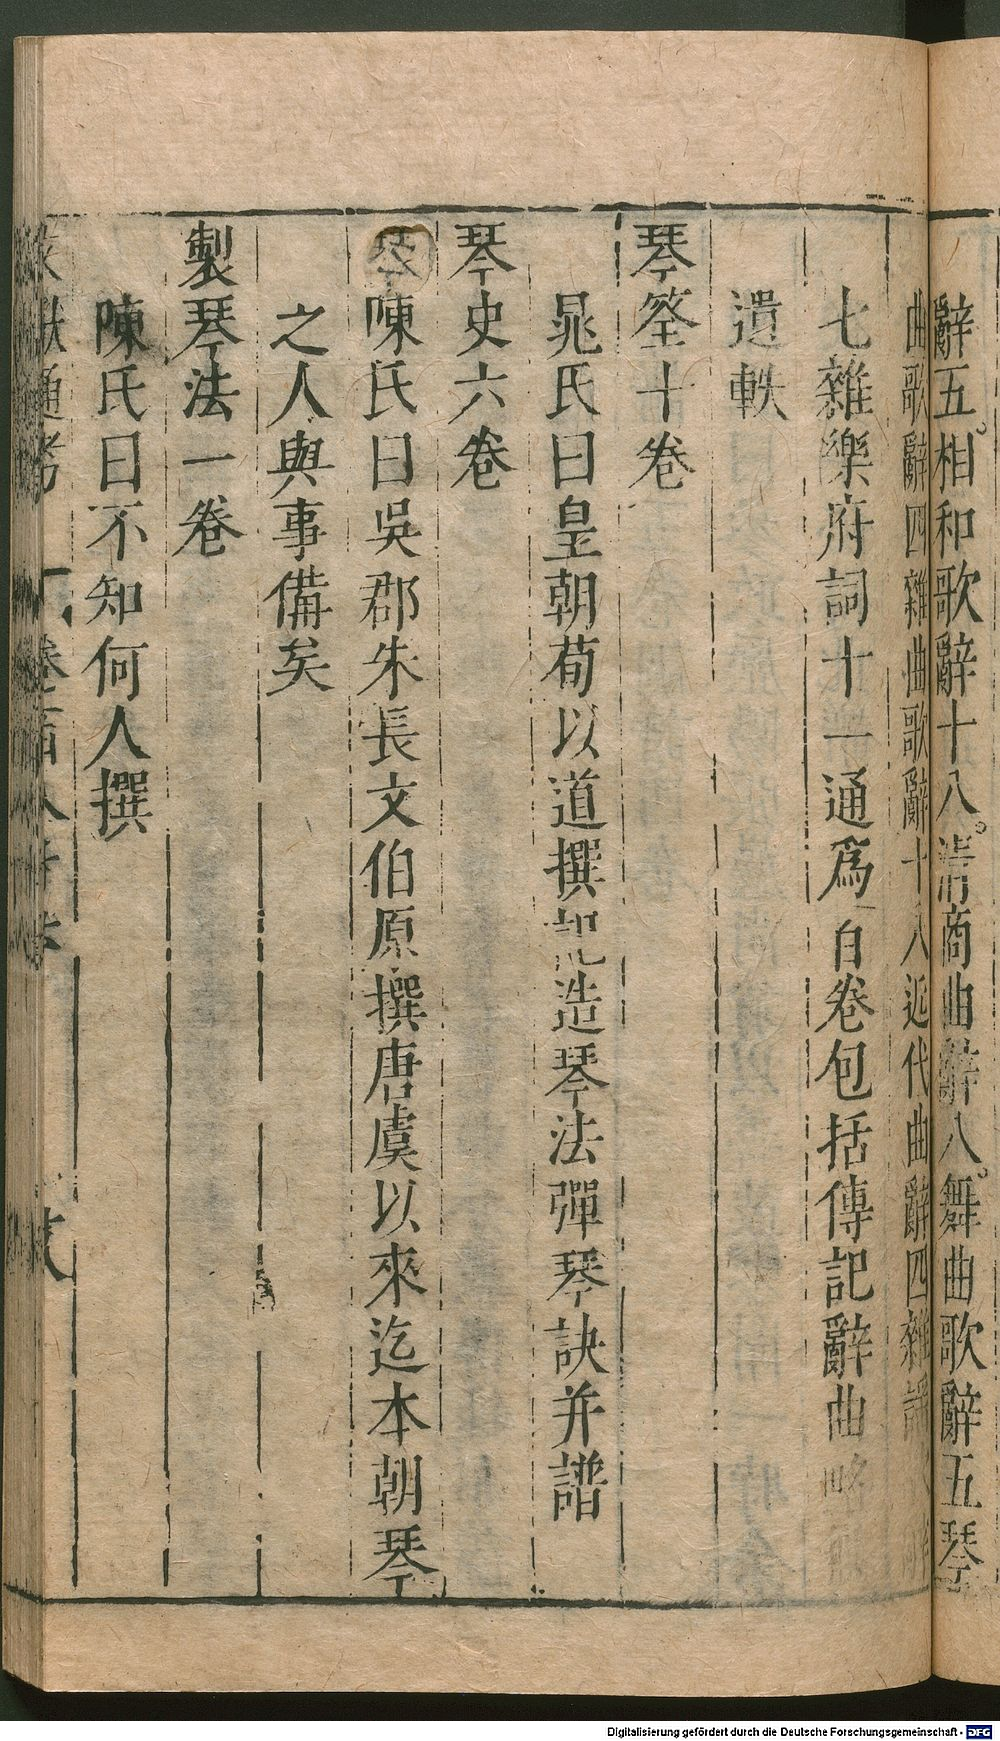 辭五相和歌辭十八清商曲辭八舞曲歌辭五琴
曲歌辭四雜曲歌辭十八近代曲辭四雜謠
七雜樂府詞十一通爲百卷包括傳記辭曲略
遺軼
琴筌十卷
晁氏曰皇朝荀以道撰記造琴法彈琴訣并譜
琴史六卷
琴陳氏曰吳郡朱長文伯原撰唐虞以來迄本朝琴
之人與事備矣
製琴法一卷
陳氏曰不知何人撰
獻通考 卷一百八十六
Digitalisierung gefördert durch die Deutsche Forschungsgemeinschaft - DFG